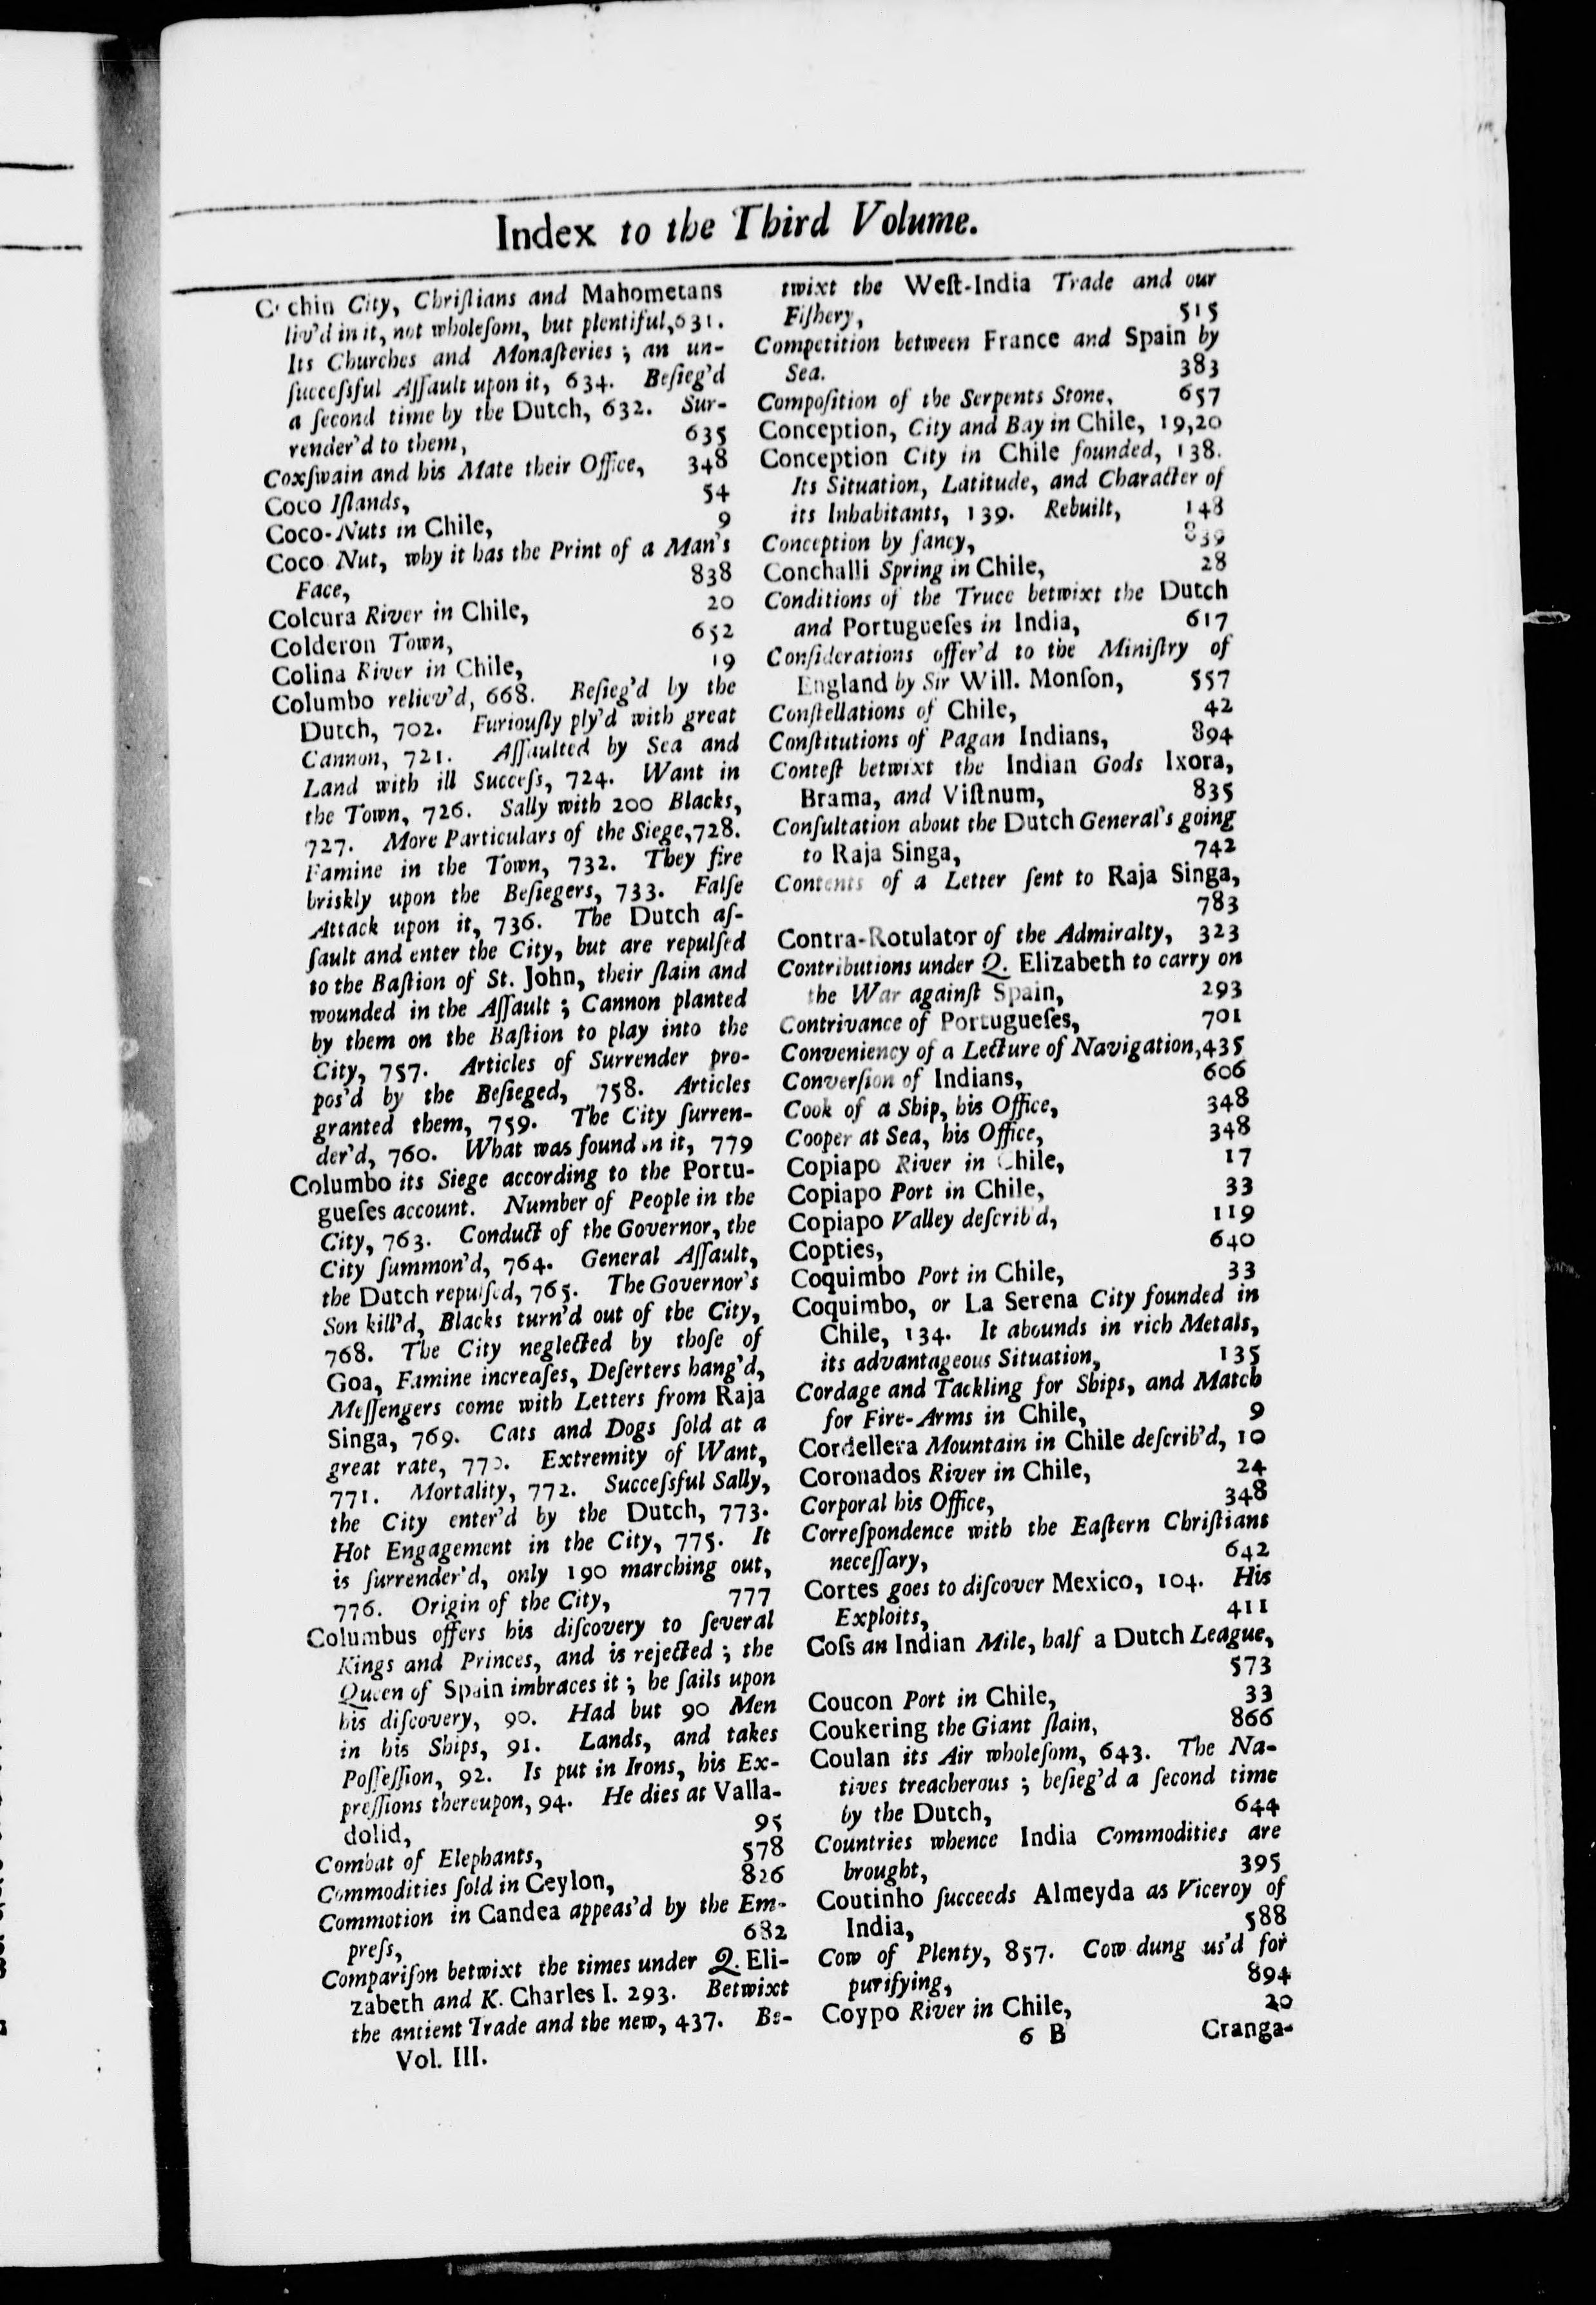 Index to the Third Volume.
Cochin City, Chriſtians and Mahometans
liv'd in it, not wholeſom, but plentiful, 631.
Its Churches and Monaſteries; an un-
ſucceſsful Aſſault upon it, 634. Beſieg'd
a ſecond time by the Dutch, 632. Sur-
render'd to them, 635
Coxſwain and his Mate their Office, 348
Coco Iſlands, 54
Coco-Nuts in Chile, 9
Coco Nut, why it has the Print of a Man's
Face, 838
Colcura River in Chile, 20
Colderon Town, 652
Colina River in Chile, 19
Columbo reliev'd, 668. Beſieg'd by the
Dutch, 702. Furiouſly ply'd with great
Cannon, 721. Aſſaulted by Sea and
Land with ill Succeſs, 724. Want in
the Town, 726. Sally with 200 Blacks,
727. More Particulars of the Siege, 728.
Famine in the Town, 732. They fire
briskly upon the Beſiegers, 733. Falſe
Attack upon it, 736. The Dutch aſ-
ſault and enter the City, but are repulſed
to the Baſtion of St. John, their ſlain and
wounded in the Aſſault; Cannon planted
by them on the Baſtion to play into the
City, 757. Articles of Surrender pro-
pos'd by the Beſieged, 758. Articles
granted them, 759. The City ſurren-
der'd, 760. What was found in it, 779
Columbo its Siege according to the Portu-
gueſes account. Number of People in the
City, 763. Conduct of the Governor, the
City ſummon'd, 764. General Aſſault,
the Dutch repulſed, 765. The Governor's
Son kill'd, Blacks turn'd out of the City,
768. The City neglected by thoſe of
Goa, Famine increaſes, Deſerters hang'd,
Meſſengers come with Letters from Raja
Singa, 769. Cats and Dogs ſold at a
great rate, 770. Extremity of Want,
771. Mortality, 772. Succeſsful Sally,
the City enter'd by the Dutch, 773.
Hot Engagement in the City, 775. It
is ſurrender'd, only 190 marching out,
776. Origin of the City, 777
Columbus offers his diſcovery to ſeveral
Kings and Princes, and is rejected; the
Queen of Spain imbraces it; he ſails upon
his diſcovery, 90. Had but 90 Men
in his Ships, 91. Lands, and takes
Poſſeſſion, 92. Is put in Irons, his Ex-
preſſions thereupon, 94. He dies at Valla-
dolid, 95
Combat of Elephants, 578
Commodities ſold in Ceylon, 826
Commotion in Candea appeas'd by the Em-
preſs, 682
Compariſon betwixt the times under Q. Eli-
zabeth and K. Charles I. 293. Betwixt
the antient Trade and the new, 437. Be-
Vol. III.
twixt the Weſt-India Trade and our
Fiſhery, 515
Competition between France and Spain by
Sea. 383
Compoſition of the Serpents Stone, 657
Conception, City and Bay in Chile, 19,20
Conception City in Chile founded, 138.
Its Situation, Latitude, and Character of
its Inhabitants, 139. Rebuilt, 148
Conception by fancy, 839
Conchalli Spring in Chile, 28
Conditions of the Truce betwixt the Dutch
and Portugueſes in India, 617
Conſiderations offer'd to the Miniſtry of
England by Sir Will. Monſon, 557
Conſtellations of Chile, 42
Conſtitutions of Pagan Indians, 894
Conteſt betwixt the Indian Gods Ixora,
Brama, and Viſtnum, 835
Conſultation about the Dutch General's going
to Raja Singa, 742
Contents of a Letter ſent to Raja Singa,
783
Contra-Rotulator of the Admiralty, 323
Contributions under Q. Elizabeth to carry on
the War againſt Spain, 293
Contrivance of Portugueſes, 701
Conveniency of a Lecture of Navigation, 435
Converſion of Indians, 606
Cook of a Ship, his Office, 348
Cooper at Sea, his Office, 348
Copiapo River in Chile, 17
Copiapo Port in Chile, 33
Copiapo Valley deſcrib'd, 119
Copties, 640
Coquimbo Port in Chile, 33
Coquimbo, or La Serena City founded in
Chile, 134. It abounds in rich Metals,
its advantageous Situation, 135
Cordage and Tackling for Ships, and Match
for Fire-Arms in Chile, 9
Cordellera Mountain in Chile deſcrib'd, 10
Coronados River in Chile, 24
Corporal his Office, 348
Correſpondence with the Eaſtern Chriſtians
neceſſary, 642
Cortes goes to diſcover Mexico, 104. His
Exploits, 411
Coſs an Indian Mile, half a Dutch League,
573
Coucon Port in Chile, 33
Coukering the Giant ſlain, 866
Coulan its Air wholeſom, 643. The Na-
tives treacherous; beſieg'd a ſecond time
by the Dutch, 644
Countries whence India Commodities are
brought, 395
Coutinho ſucceeds Almeyda as Viceroy of
India, 588
Cow of Plenty, 857. Cow dung us'd for
purifying, 894
Coypo River in Chile, 20
6 B Cranga-